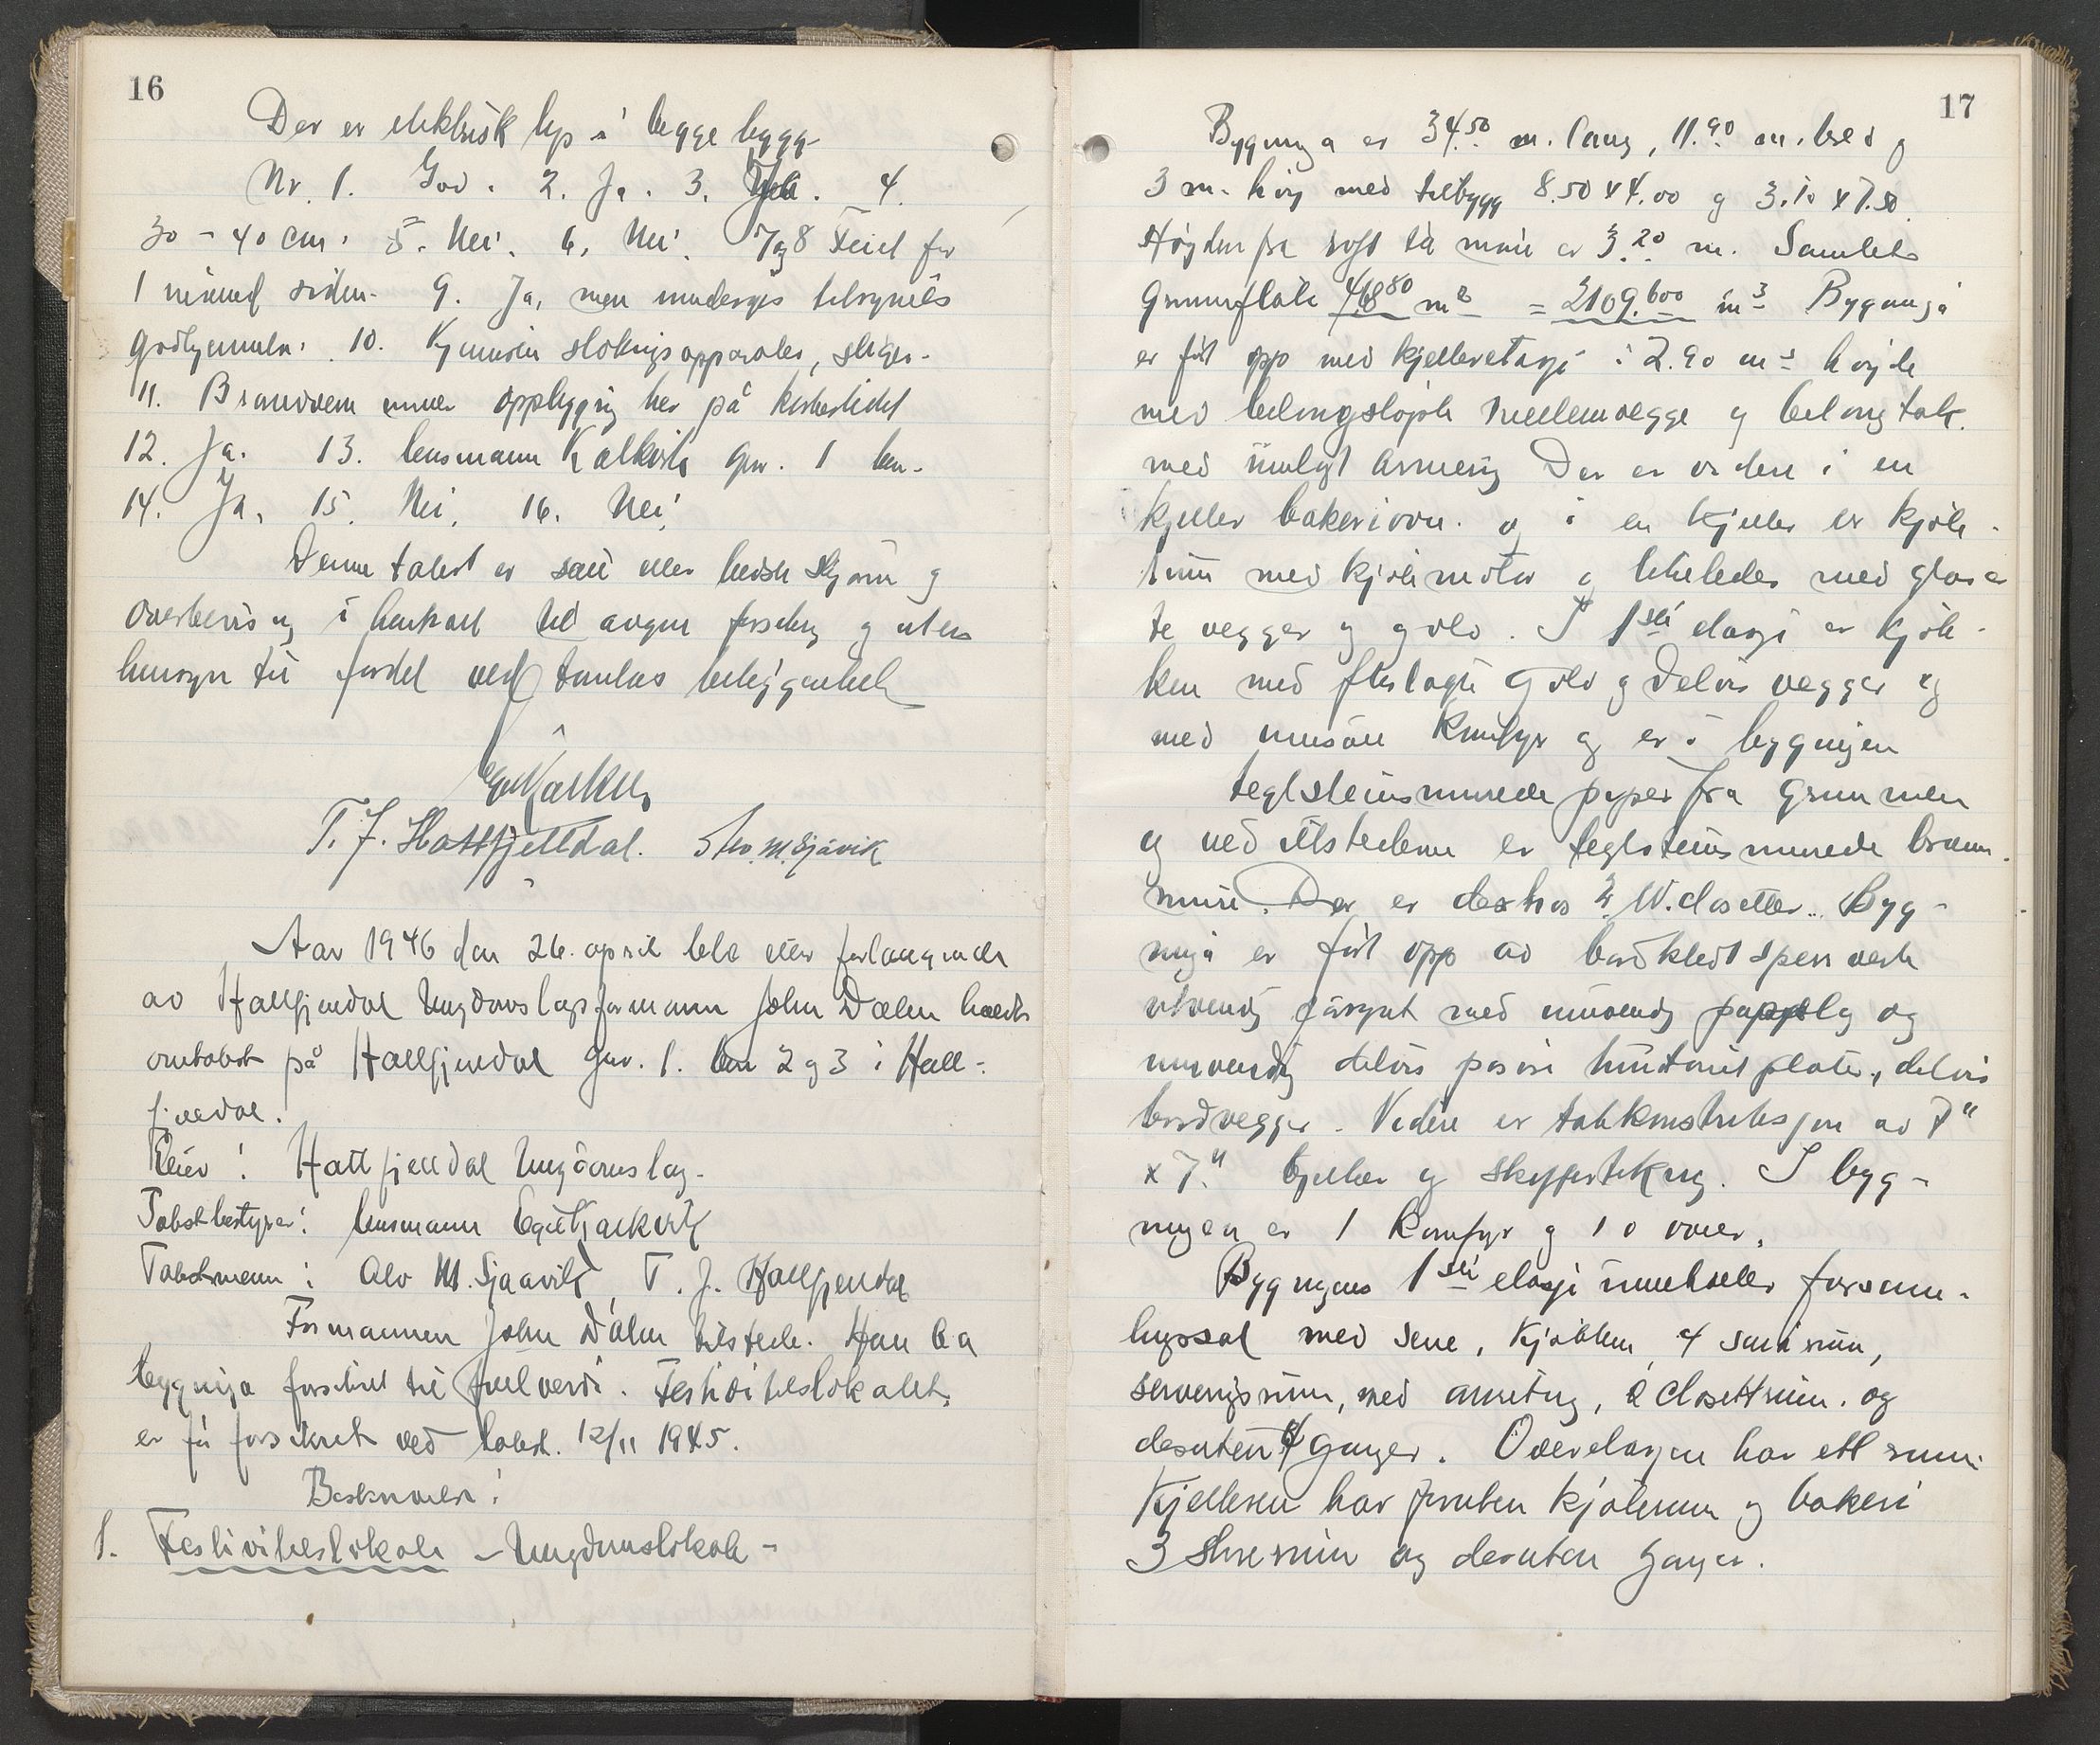 16
Der er elektrisk lys i begge bygg-
Nr. 1. God. 2. Ja. 3. Nei. 4.
30 - 40 cm. 5. Nei. 6. Nei. 7 og 8 Feiet for
1 måned siden. 9. Ja, men undergis tilsynets
godkjennelse. 10. Kjemiske slokingsapparater, stiger.
11. Brandvern under oppbygging her på kirkestedet
12. Ja. 13. lensmann Kalkvik gnr. 1 bnr.
14. Ja. 15. Nei. 16. Nei.
Denne takst er satt etter bedste skjønn og
overbevisning i henhold til avgitt forsikring og uten
hensyn til fordel ved tomtas beliggenhet
T. J. Hattfjelldal. Alv. M. Sjåvik
Aar 1946 den 26. april ble etter forlangende
av Hattfjelldal Ungdomslags formann John Dalen holdt
omtakst på Hattfjelldal gnr. 1. bnr 2 og 3 i Hatt-
fjelldal.
Eier: Hattfjelldal Ungdomslag.
Takstbestyrer: lensmann Egil Kalkvik
Takstmenn: Alv M. Sjaavik, T. J. Hattfjelldal
Formannen John Dalen tilstede. Han ba
bygninga forsikret til full verdi. Festivitetslokalet
er før forsikret ved takst. 12/11 1945.
Beskrivelse:
1. Festivitetslokale - Ungdomslokale -
17
Bygninga er 34.50 m. lang, 11.90 m. bred og
3 m. høy med tilbygg 8.50 x 4.00 og 3.10 x 7.50.
Høyden fra loft til møne er 3.20 m. Samlet
Grunnflate 468.80 m2 = 2109.600 m3 Bygninga
er ført opp med kjelleretasje i 2.90 m's høyde
med betongstøpte mellemvegge og betongtak.
med innlagt armering Der er videre i en
kjeller bakeriovn. og i en kjeller er kjøle-
rum med kjølemotor og likeledes med glaser-
te vegger og golv. I 1ste etasje er kjøk-
ken med flislagte golv og delvis vegger og
med innsatt komfyr og er i bygningen
teglsteinsmurede piper fra grunnen
og ved ildstedene er teglsteinsmurede brann-
mure. Der er dertos W.closetter. Byg-
ninga er ført opp av bordkledt sperreverk
utvendig panelt med innvendig papplag og
innvendig delvis plater, delvis
bordvegger. Videre er takkonstruksjon av 7"
x 7" bjelker og skifertekning. I byg-
ningen er 1 komfyr og 10 ovner.
Bygningens 1ste etasje inneholder forsam-
lingssal med scene, kjøkken, 4 små rum,
serveringsrum, med anretning, 2 closettrum. og
desuten ganger. Overetasjen har ett rum.
Kjelleren har foruten kjølerum og bakeri
3 store rum og desuten ganger.